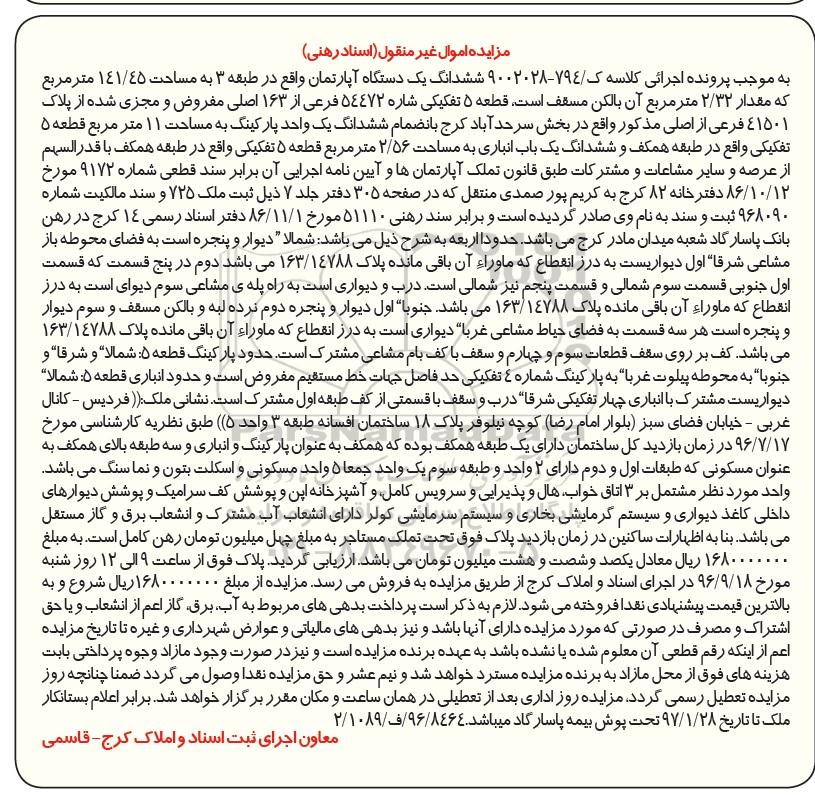 مزایده اموال غیر منقول (اسناد رهنی)
به موجب پرونده اجرائی کلاسه ک/۷۹۴-۹۰۰۲۰۲۸ ششدانگ یک دستگاه آپارتمان واقع در طبقه ۳ به مساحت ۱۴۱/۴۵ مترمربع
که مقدار ۲/۳۲ مترمربع آن بالکن مسقف است، قطعه ۵ تفکیکی شاره ۵۴۴۷۲ فرعی از ۱۶۳ اصلی مفروض و مجزی شده از پلاک
۴۱۵۰۱ فرعی از اصلی مذکور واقع در بخش سرحدآباد کرج بانضمام ششدانگ یک واحد پارکینگ به مساحت ۱۱ متر مربع قطعه ۵
تفکیکی واقع در طبقه همکف و ششدانگ یک باب انباری به مساحت ۲/۵۶ مترمربع قطعه ۵ تفکیکی واقع در طبقه همکف با قدرالسهم
از عرصه و سایر مشاعات و مشترکات طبق قانون تملک آپارتمان ها و آیین نامه اجرایی آن برابر سند قطعی شماره ۹۱۷۲ مورخ
۸۶/۱۰/۱۲ دفترخانه ۸۲ کرج به کریم پور صمدی منتقل که در صفحه ۳۰۵ دفتر جلد ۷ ذیل ثبت ملک ۷۲۵ و سند مالکیت شماره
۹۶۸۰۹۰ ثبت و سند به نام وی صادر گردیده است و برابر سند رهنی ۵۱۱۱۰ مورخ ۸۶/۱۱/۱ دفتر اسناد رسمی ۱۴ کرج در رهن
بانک پاسارگاد شعبه میدان مادر کرج می باشد. حدود اربعه به شرح ذیل می باشد: شمالا" دیوار و پنجره است به فضای محوطه باز
مشاعی شرقا" اول دیواریست به درز انقطاع که ماوراء آن باقی مانده پلاک ۱۶۳/۱۴۷۸۸ می باشد دوم در پنج قسمت که قسمت
اول جنوبی قسمت سوم شمالی و قسمت پنجم نیز شمالی است. درب و دیواری است به راه پله ی مشاعی سوم دیوای است به درز
انقطاع که ماوراء آن باقی مانده پلاک ۱۶۳/۱۴۷۸۸ می باشد. جنوبا" اول دیوار و پنجره دوم نرده لبه و بالکن مسقف و سوم دیوار
و پنجره است هر سه قسمت به فضای حیاط مشاعی غربا" دیواری است به درز انقطاع که ماوراء آن باقی مانده پلاک ۱۶۳/۱۴۷۸۸
می باشد. کف بر روی سقف قطعات سوم و چهارم و سقف با کف بام مشاعی مشترک است. حدود پارکینگ قطعه ۵: شمالا" و شرقا" و
جنوبا" به محوطه پیلوت غربا" به پارکینگ شماره ۴ تفکیکی حد فاصل جهات خط مستقیم مفروض است و حدود انباری قطعه ۵: شمالا"
دیواریست مشترک با انباری چهار تفکیکی شرقا" درب و سقف با قسمتی از کف طبقه اول مشترک است. نشانی ملک:(( فردیس - کانال
غربی - خیابان فضای سبز (بلوار امام رضا) کوچه نیلوفر پلاک ۱۸ ساختمان افسانه طبقه ۳ واحد ۵)) طبق نظریه کارشناسی مورخ
۹۶/۷/۱۷ در زمان بازدید کل ساختمان دارای یک طبقه همکف بوده که همکف به عنوان پارکینگ و انباری و سه طبقه بالای همکف به
عنوان مسکونی که طبقات اول و دوم دارای ۲ واحد و طبقه سوم یک واحد جمعا ۵ واحد مسکونی و اسکلت بتون و نما سنگ می باشد.
واحد مورد نظر مشتمل بر ۳ اتاق خواب، هال و پذیرایی و سرویس کامل و آشپزخانه اپن و پوشش کف سرامیک و پوشش دیوارهای
داخلی کاغذ دیواری و سیستم گرمایشی بخاری و سیستم سرمایشی کولر دارای انشعاب آب مشترک و انشعاب برق و گاز مستقل
می باشد. بنا به اظهارات ساکنین در زمان بازدید پلاک فوق تحت تملک مستاجر به مبلغ چهل میلیون تومان رهن کامل است. به مبلغ
۱۶۸۰۰۰۰۰۰۰ ریال معادل یکصد وشصت و هشت میلیون تومان می باشد. ارزیابی گردید. پلاک فوق از ساعت ۹ الی ۱۲ روز شنبه
مورخ ۹۶/۹/۱۸ در اجرای اسناد و املاک کرج از طریق مزایده به فروش می رسد. مزایده از مبلغ ۱۶۸۰۰۰۰۰۰۰ ریال شروع و به
بالاترین قیمت پیشنهادی نقدا فروخته می شود. لازم به ذکر است پرداخت بدهی های مربوط به آب، برق، گاز اعم از انشعاب و یا حق
اشتراک و مصرف در صورتی که مورد مزایده دارای آنها باشد و نیز بدهی های مالیاتی و عوارض شهرداری و غیره تا تاریخ مزایده
اعم از اینکه رقم قطعی آن معلوم شده یا نشده باشد به عهده برنده مزایده است و نیز در صورت وجود مازاد وجوه پرداختی بابت
هزینه های فوق از محل مازاد به برنده مزایده مسترد خواهد شد و نیم عشر و حق مزایده نقدا وصول می گردد ضمنا چنانچه روز
مزایده تعطیل رسمی گردد، مزایده روز اداری بعد از تعطیلی در همان ساعت و مکان مقرر برگزار خواهد شد. برابر اعلام بستانکار
ملک تا تاریخ ۹۷/۱/۲۸ تحت پوش بیمه پاسارگاد میباشد. ۹۶/۸۴۶۴/ف/۲/۱۰۸۹
معاون اجرای ثبت اسناد و املاک کرج - قاسمی
ParsNamadData
۰۲۱-۸۸۳۴۹۶۷۰-۵